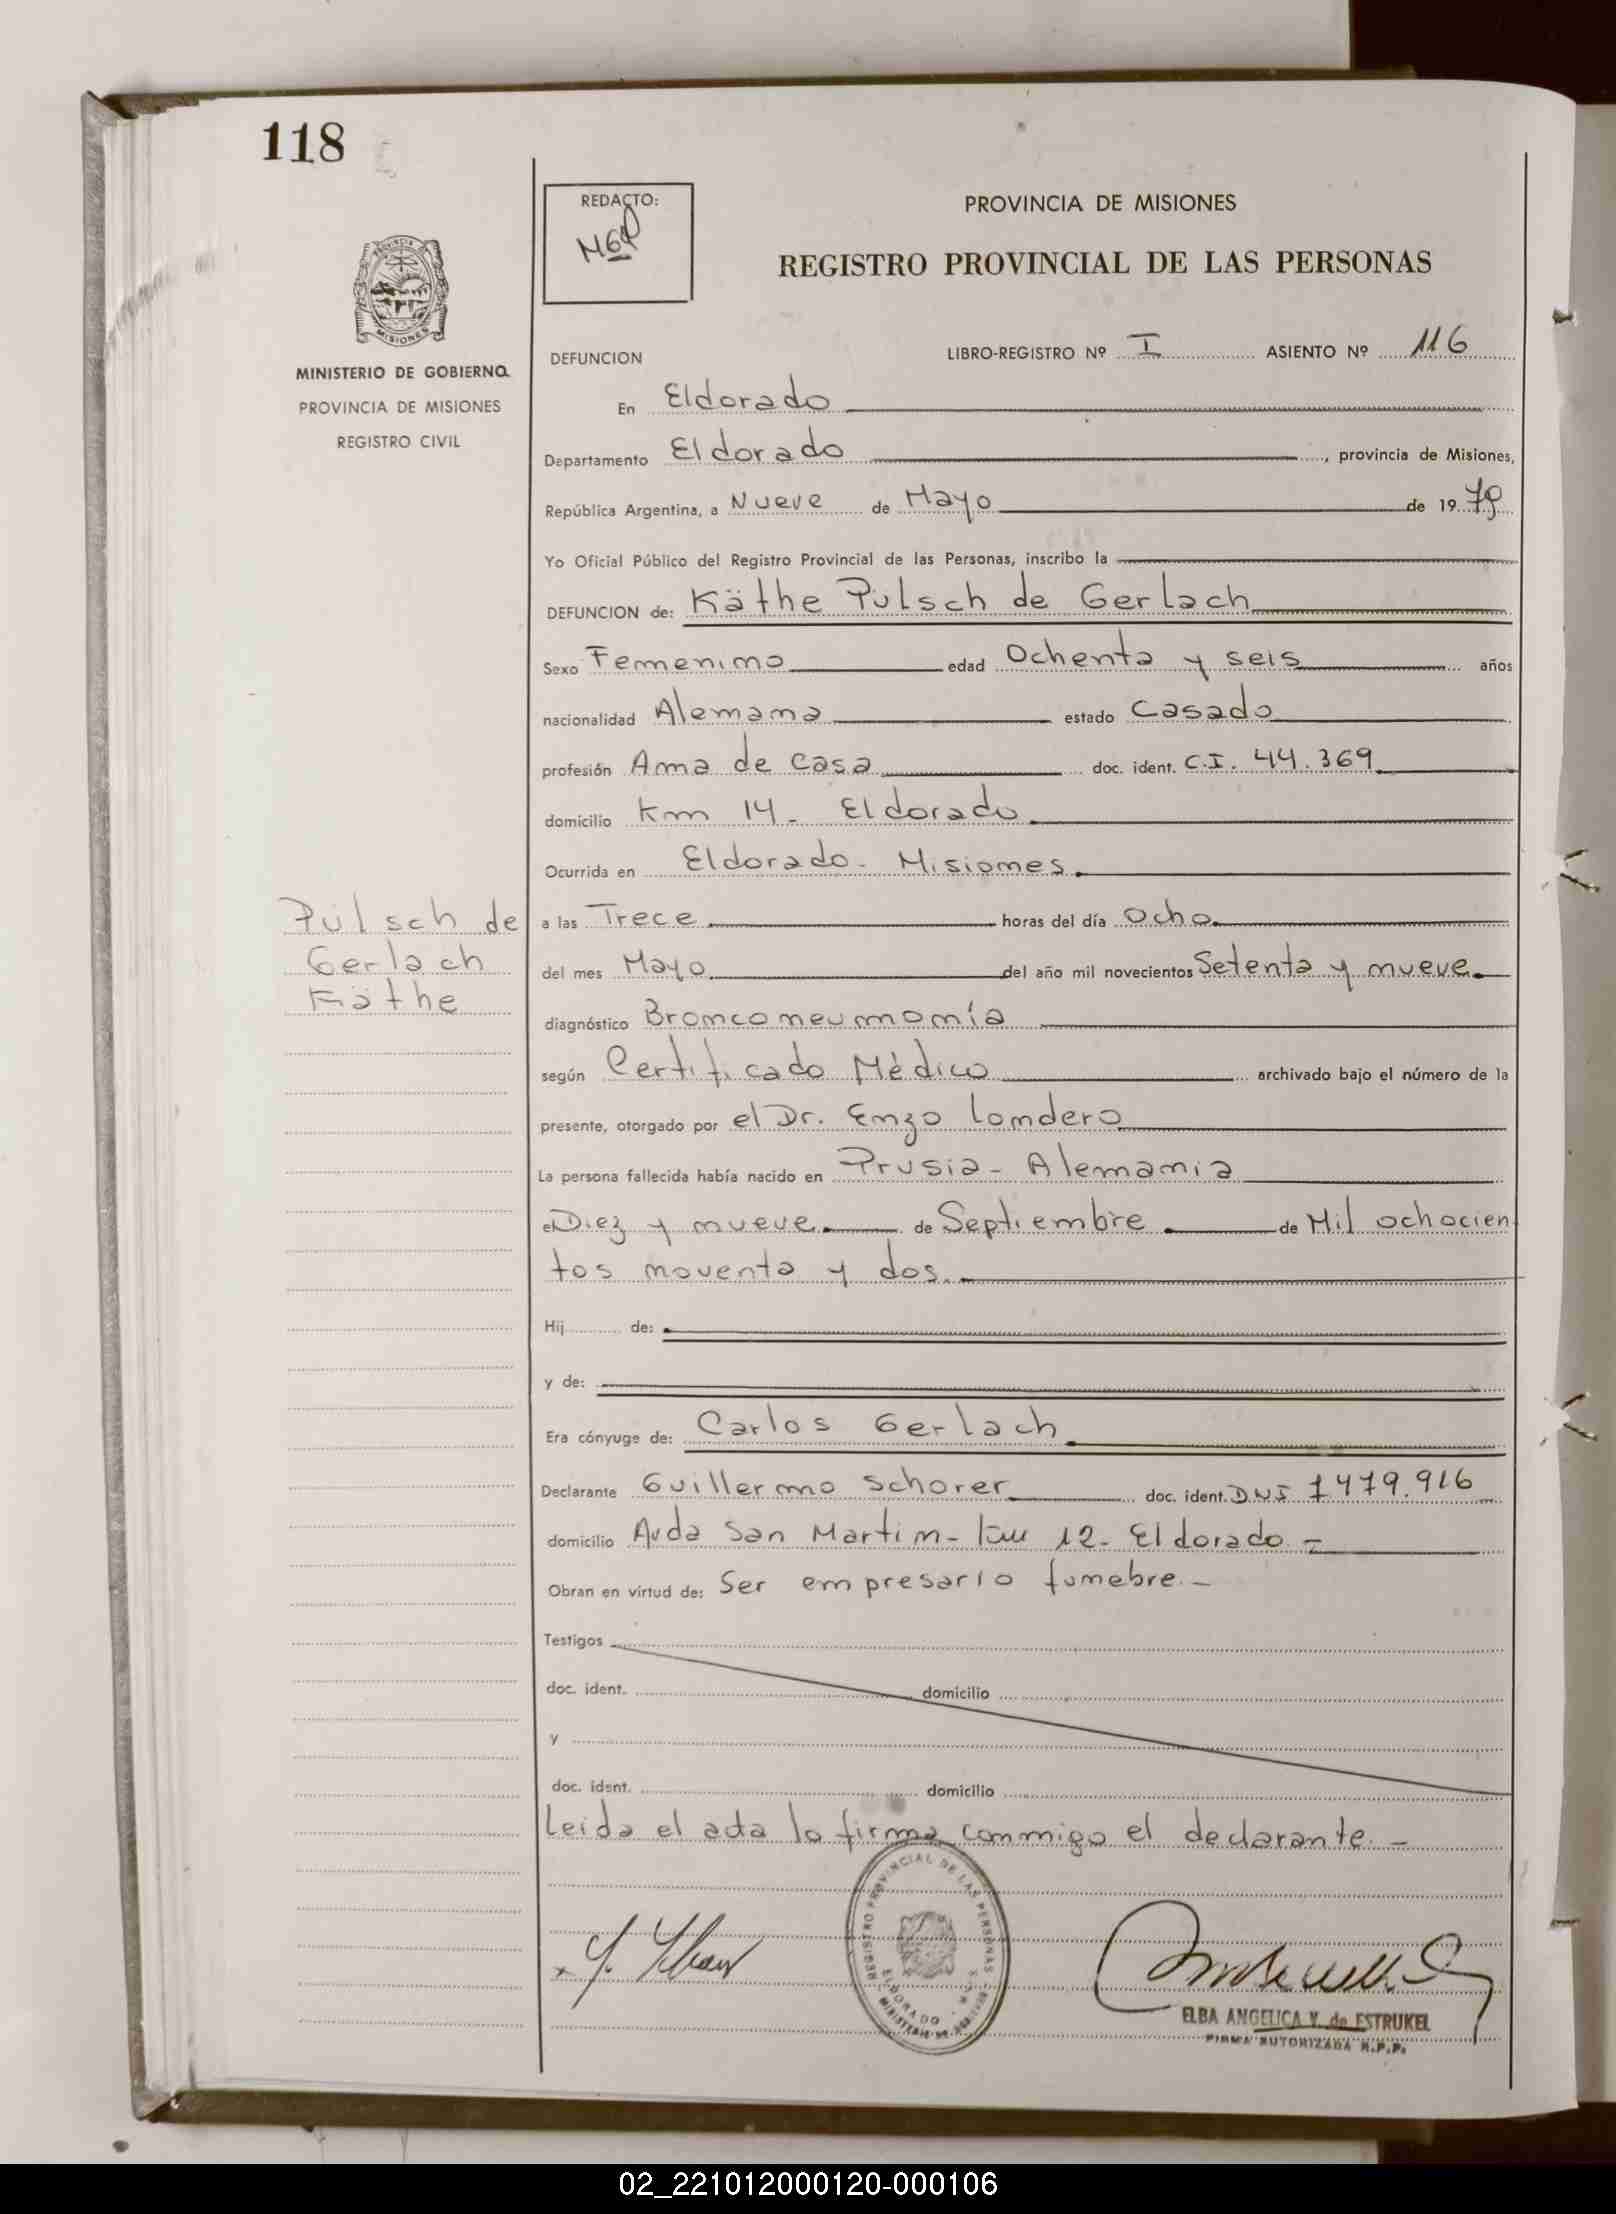 118
REDACTO:
MGP
PROVINCIA DE MISIONES
REGISTRO PROVINCIAL DE LAS PERSONAS
MISIONES
MINISTERIO DE GOBIERNO
PROVINCIA DE MISIONES
REGISTRO CIVIL
DEFUNCION LIBRO-REGISTRO Nº I ASIENTO Nº 116
En Eldorado
Departamento Eldorado, provincia de Misiones,
República Argentina, a Nueve de Mayo de 1979
Yo Oficial Público del Registro Provincial de las Personas, inscribo la
DEFUNCION de: Käthe Pülsch de Gerlach
Sexo Femenino edad Ochenta y seis años
nacionalidad Alemana estado Casado
profesión Ama de casa doc. ident. C.I. 44.369
domicilio Km 14 - Eldorado
Ocurrida en Eldorado - Misiones.
Pülsch de
Gerlach
Käthe
a las Trece horas del día Ocho
del mes Mayo del año mil novecientos Setenta y nueve
diagnóstico Bronconeumonía
según Certificado Médico archivado bajo el número de la
presente, otorgado por el Dr. Enzo Londero
La persona fallecida había nacido en Prusia - Alemania
el Diez y nueve de Septiembre de Mil ochocien
tos noventa y dos.
Hij de:
y de:
Era cónyuge de: Carlos Gerlach
Declarante Guillermo Schorer doc. ident. DNI 7479.916
domicilio Avda San Martin - km 12 - Eldorado -
Obran en virtud de: Ser empresario funebre. -
Testigos
doc. ident. domicilio
y
doc. ident. domicilio
Leida el acta la firma conmigo el declarante. -
REGISTRO PROVINCIAL DE LAS PERSONAS
ELDORADO
ELBA ANGELICA V. de ESTRUKEL
FIRMA AUTORIZADA R.P.P.
02_221012000120-000106